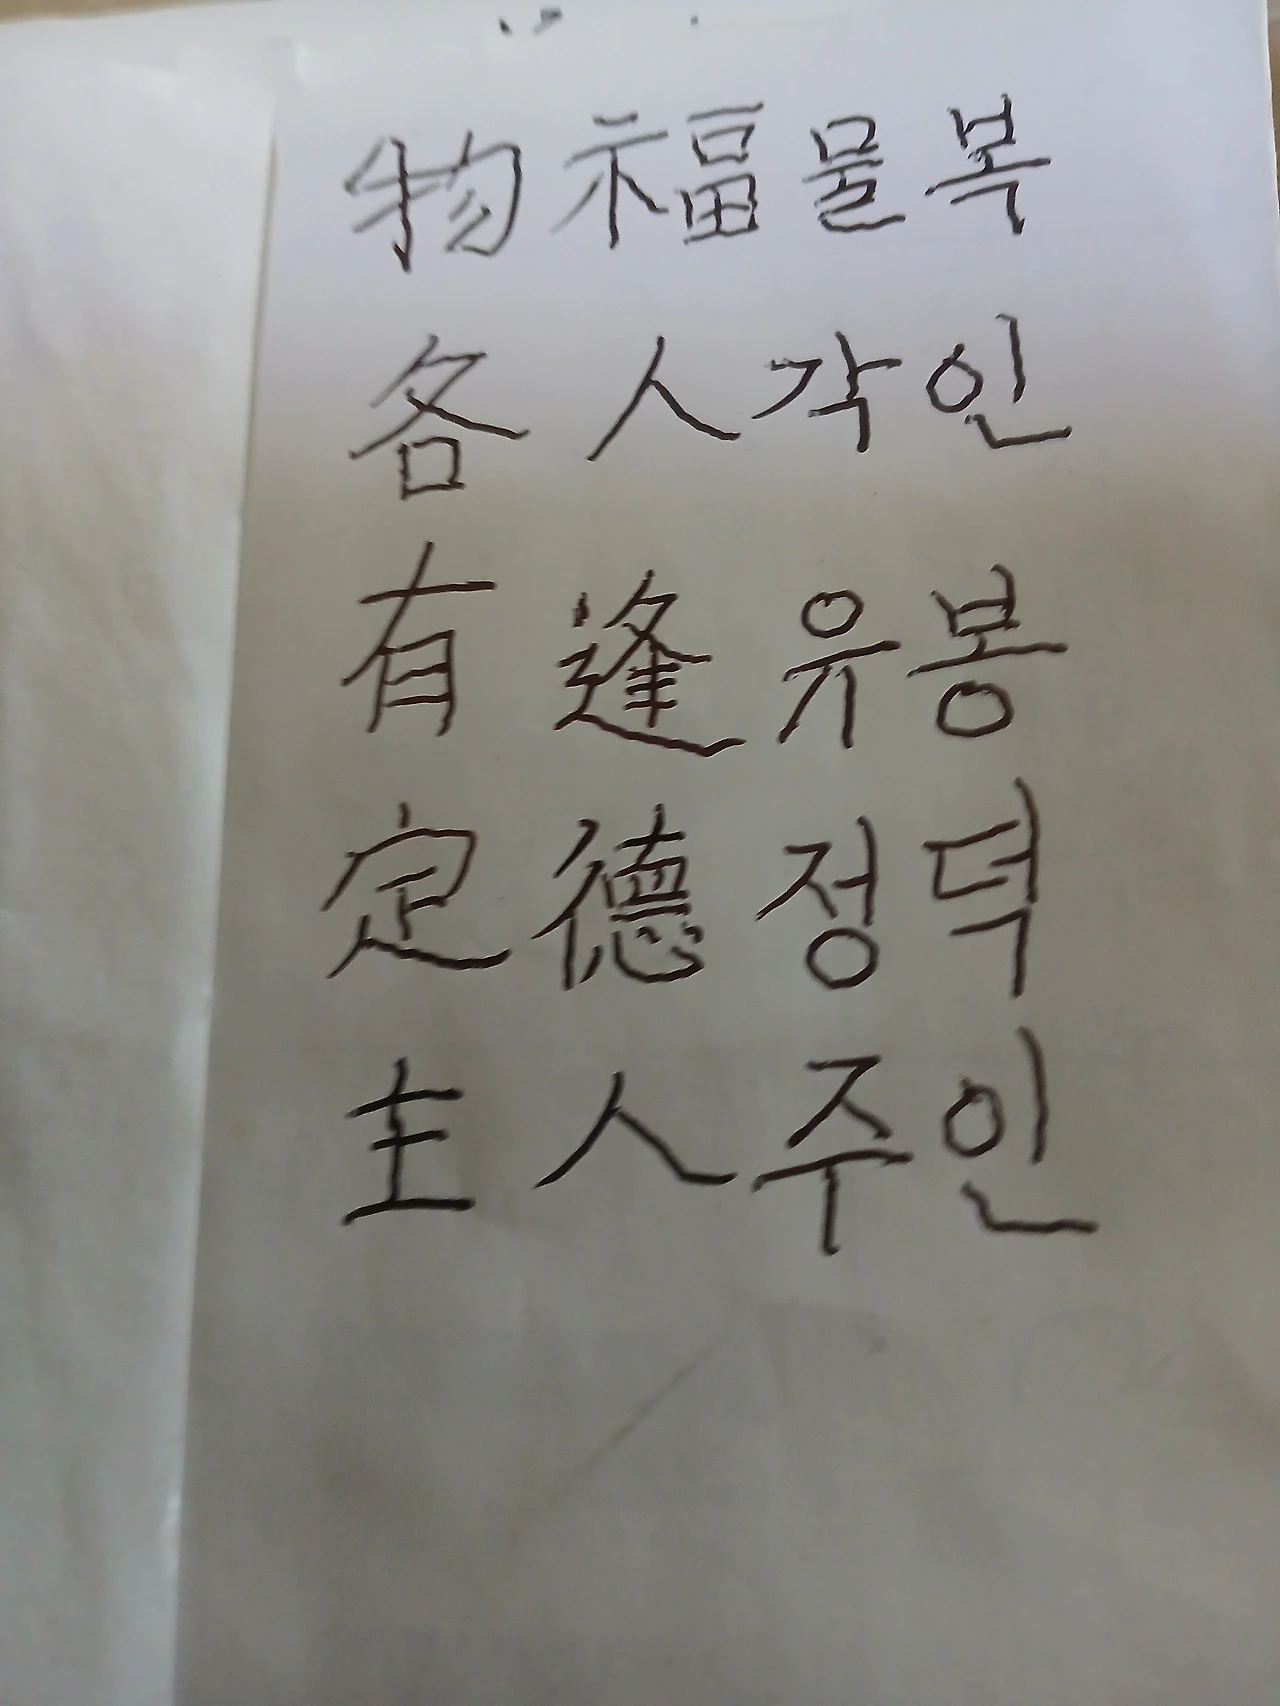 物福물복
各人각인
有逢유봉
定德정덕
主人주인